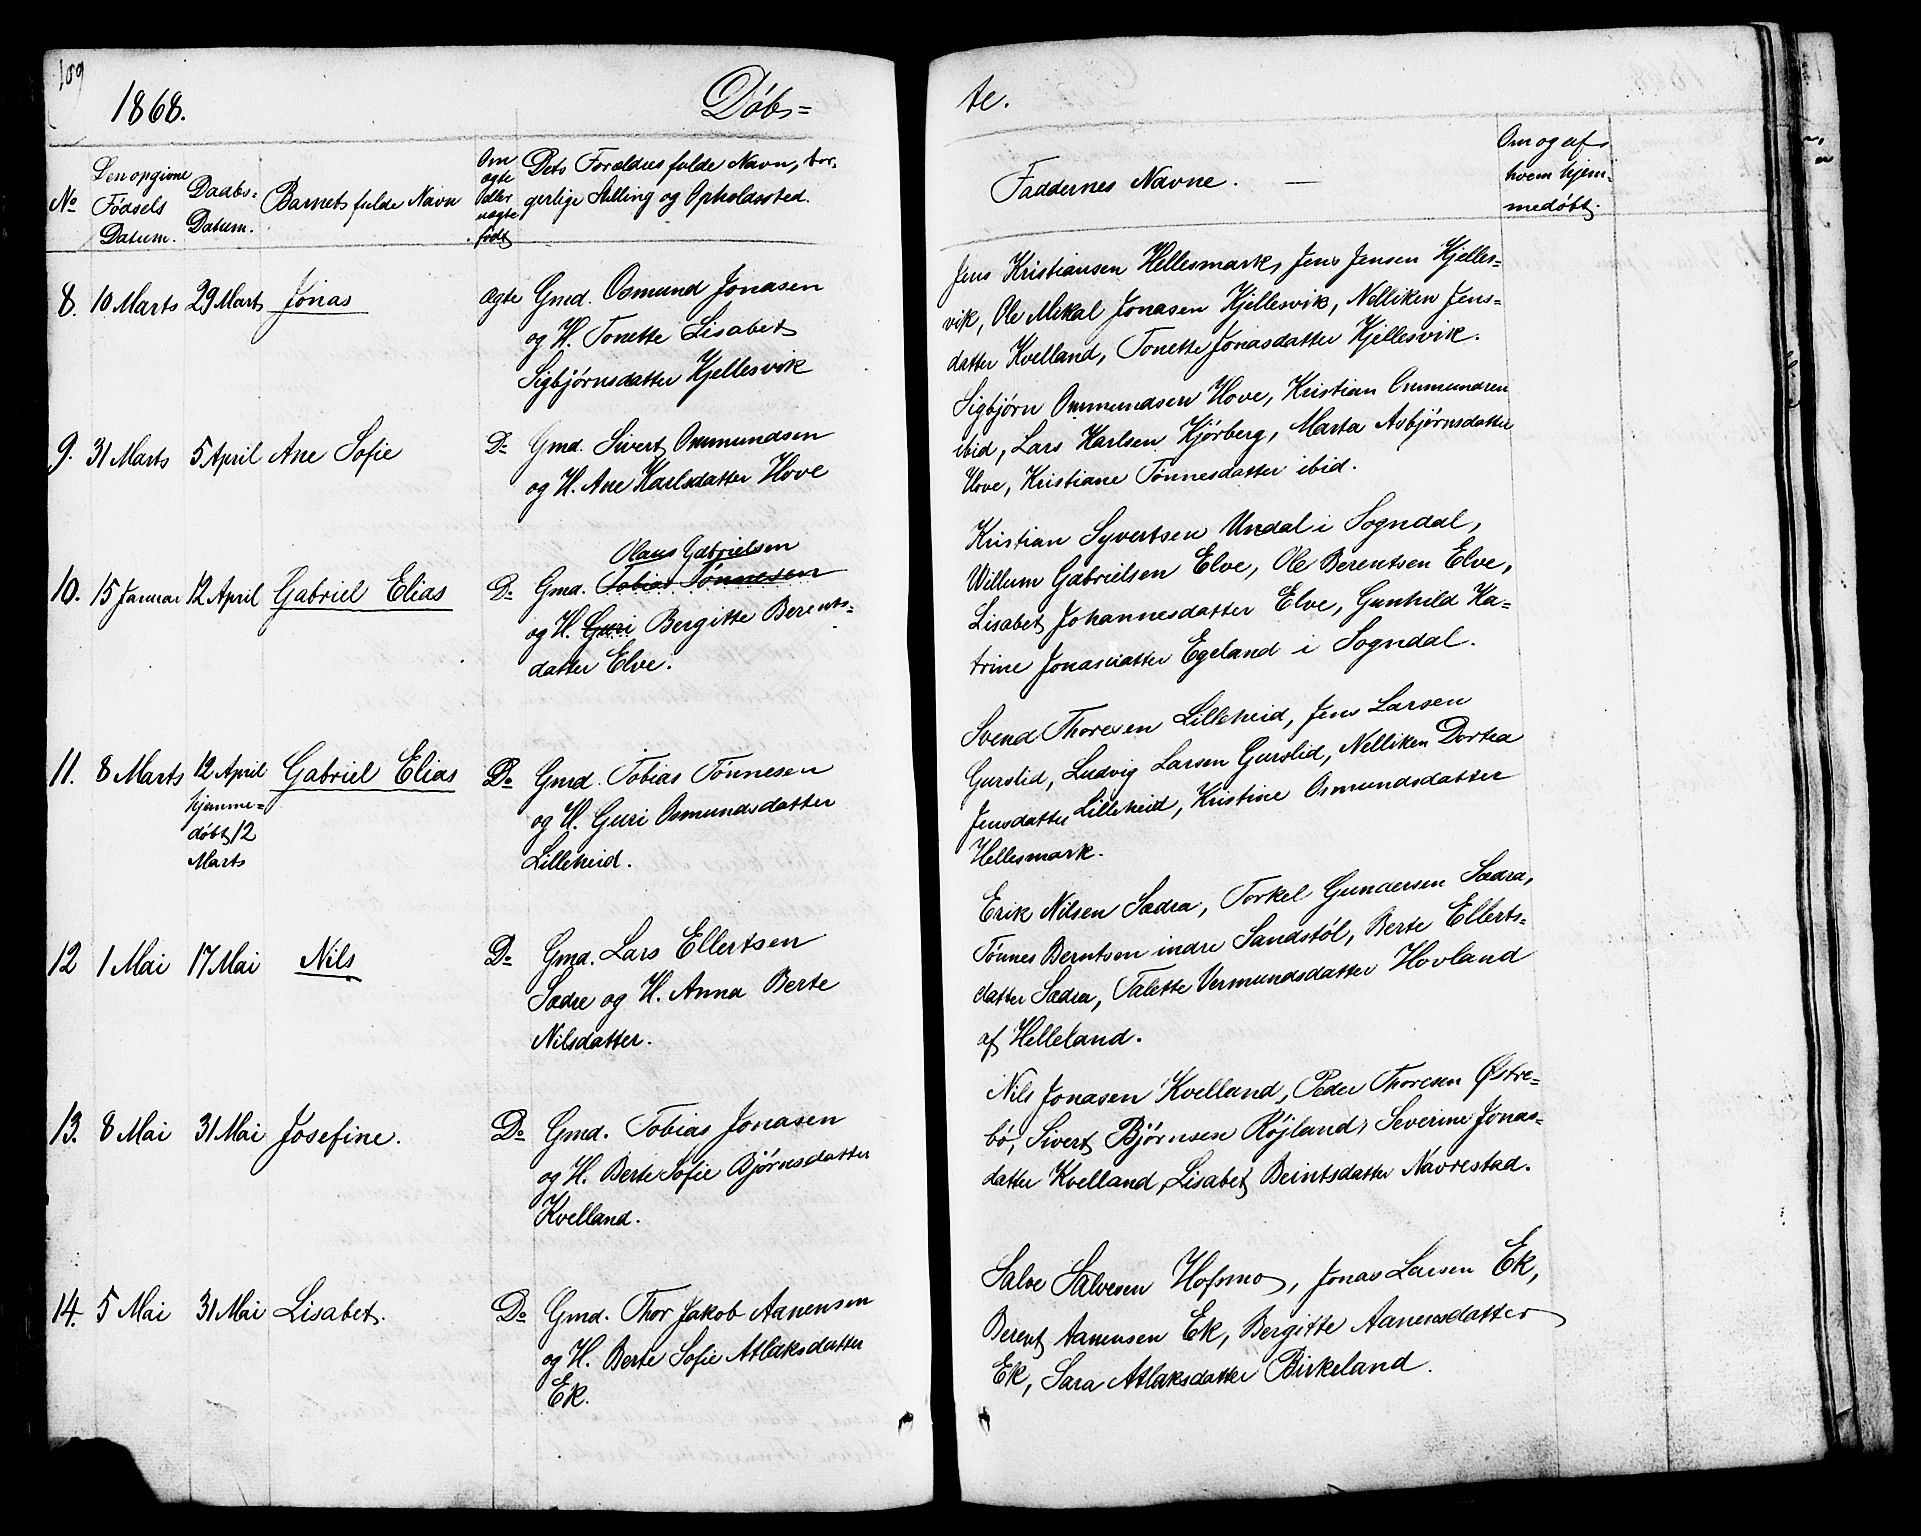 109
1868.
Døbs=
te.
No
Den opgivne
Fødsels
Datum.
Daabs-
Datum.
Barnets fulde Navn
Om
ægte
eller
uægte
født
Dets Forældres fulde Navn, bor-
gerlige Stilling og Opholdssted.
Faddernes Navne. —
Om og af
hvem hjem-
medøbt.
8. 10 Marts 29 Marts Jonas
ægte Gmd. Osmund Jonasen
og H. Tonette Lisabet
Sigbjørnsdatter Kjellesvik
Jens Kristiansen Hellesmark, Jens Jensen Kjelles-
vik, Ole Mikal Jonasen Kjellesvik, Nelliken Jens-
datter Kvelland, Tonette Jonasdatter Kjellesvik.
9. 31 Marts 5 April Ane Sofie
Do Gmd. Sivert Ommundsen
og H. Ane Karlsdatter Hove
Sigbjørn Ommundsen Hove, Kristian Ommundsen
ibid, Lars Karlsen Kjørberg, Marta Asbjørnsdatter
Hove, Kristiane Tønnesdatter ibid.
10. 15 Januar 12 April Gabriel Elias
Olaus Gabrielsen
Do Gmd. Tobias Tønnesen
og H. Guri Bergitte Berents-
datter Elve.
Kristian Syvertsen Urdal i Sogndal,
Willum Gabrielsen Elve, Ole Berentsen Elve,
Lisabet Johannesdatter Elve, Gunhild Ka-
trine Jonasdatter Egeland i Sogndal.
11. 8 Marts 12 April Gabriel Elias
hjemme-
døbt 12
Marts
Do Gmd. Tobias Tønnesen
og H. Guri Osmundsdatter
Lilleheid.
Svend Thoresen Lilleheid, Jens Larsen
Gurslid, Ludvig Larsen Gurslid, Nelliken Dortea
Jensdatter Lilleheid, Kristine Osmundsdatter
Hellesmark.
12 1 Mai 17 Mai Nils
Do Gmd. Lars Ellertsen
Sædre og H. Anna Berte
Nilsdatter.
Erik Nilsen Sædra, Torkel Gundersen Sædra,
Tønnes Berntsen indre Sandstøl, Berte Ellerts-
datter Sædra, Talette Vermundsdatter Hovland
af Helleland.
13. 8 Mai 31 Mai Josefine.
Do Gmd. Tobias Jonasen
og H. Berte Sofie Bjørnsdatter
Kvelland.
Nils Jonasen Kvelland, Peder Thoresen Østre-
bø, Sivert Bjørnsen Røjland, Severine Jonas-
datter Kvelland, Lisabet Beintsdatter Navrestad.
14. 5 Mai 31 Mai Lisabet.
Do Gmd. Thor Jakob Aanensen
og H. Berte Sofie Atlaksdatter
Ek.
Salve Salvesen Hofsmo, Jonas Larsen Ek,
Berent Aanensen Ek, Bergitte Aanensdatter
Ek, Sara Atlaksdatter Birkeland.